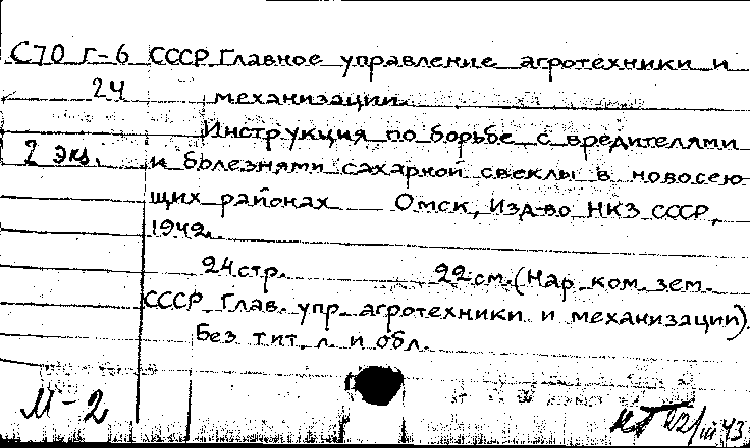 С70 Г-6 СССР. Главное управление агротехники и
24 механизации.
Инструкция по борьбе с вредителями
2 экз. и болезнями сахарной свеклы в новосею
щих районах Омск, Изд-во НКЗ СССР,
1942.
24 стр. 22 см. (Нар. ком. зем.
СССР. Глав. упр. агротехники и механизации).
Без тит. л. и обл.
М-2
22/III 43